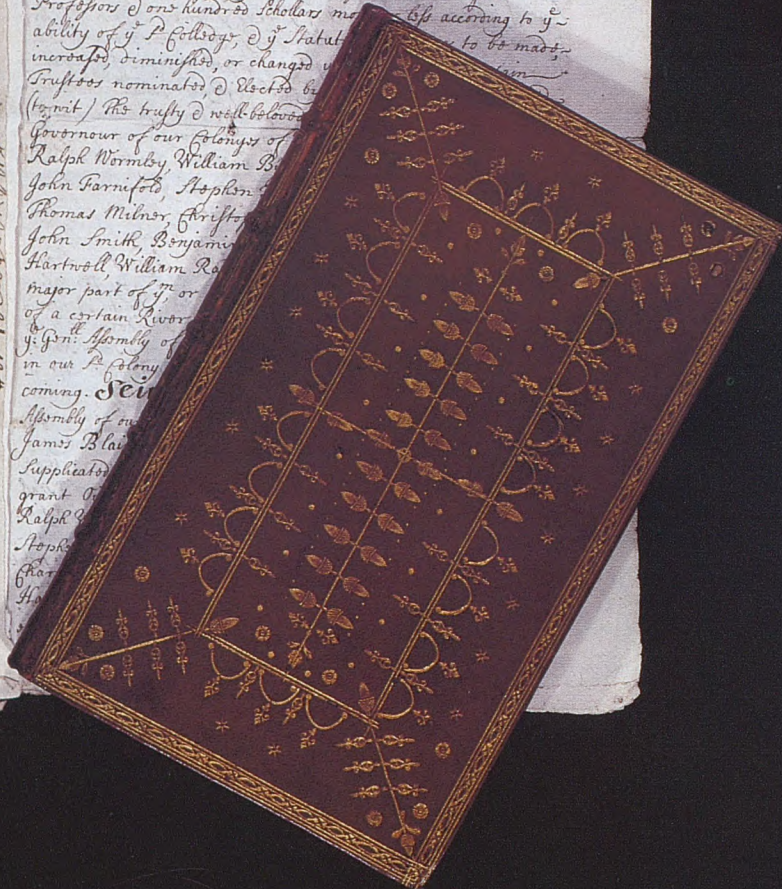 Professors & one hundred Schollars mo less according to yͤ
ability of yͤ sᵈ Colledge, & yͤ Statut to be made,
increased, diminished, or changed
Trustees nominated & Elected b
(to wit) The trusty & well-beloved
Governour of our Colonyes of
Ralph Wormley, William B
John Farnifold, Stephen
Thomas Milner Christo
John Smith Benjamin
Hartwell William Ra
major part of yᵐ or
of a certain River
yͤ Genˡˡ Assembly of
in our sᵈ Colony
coming. Sei
Assembly of our
James Blai
Supplicated
grant
Ralph
Steph
Char